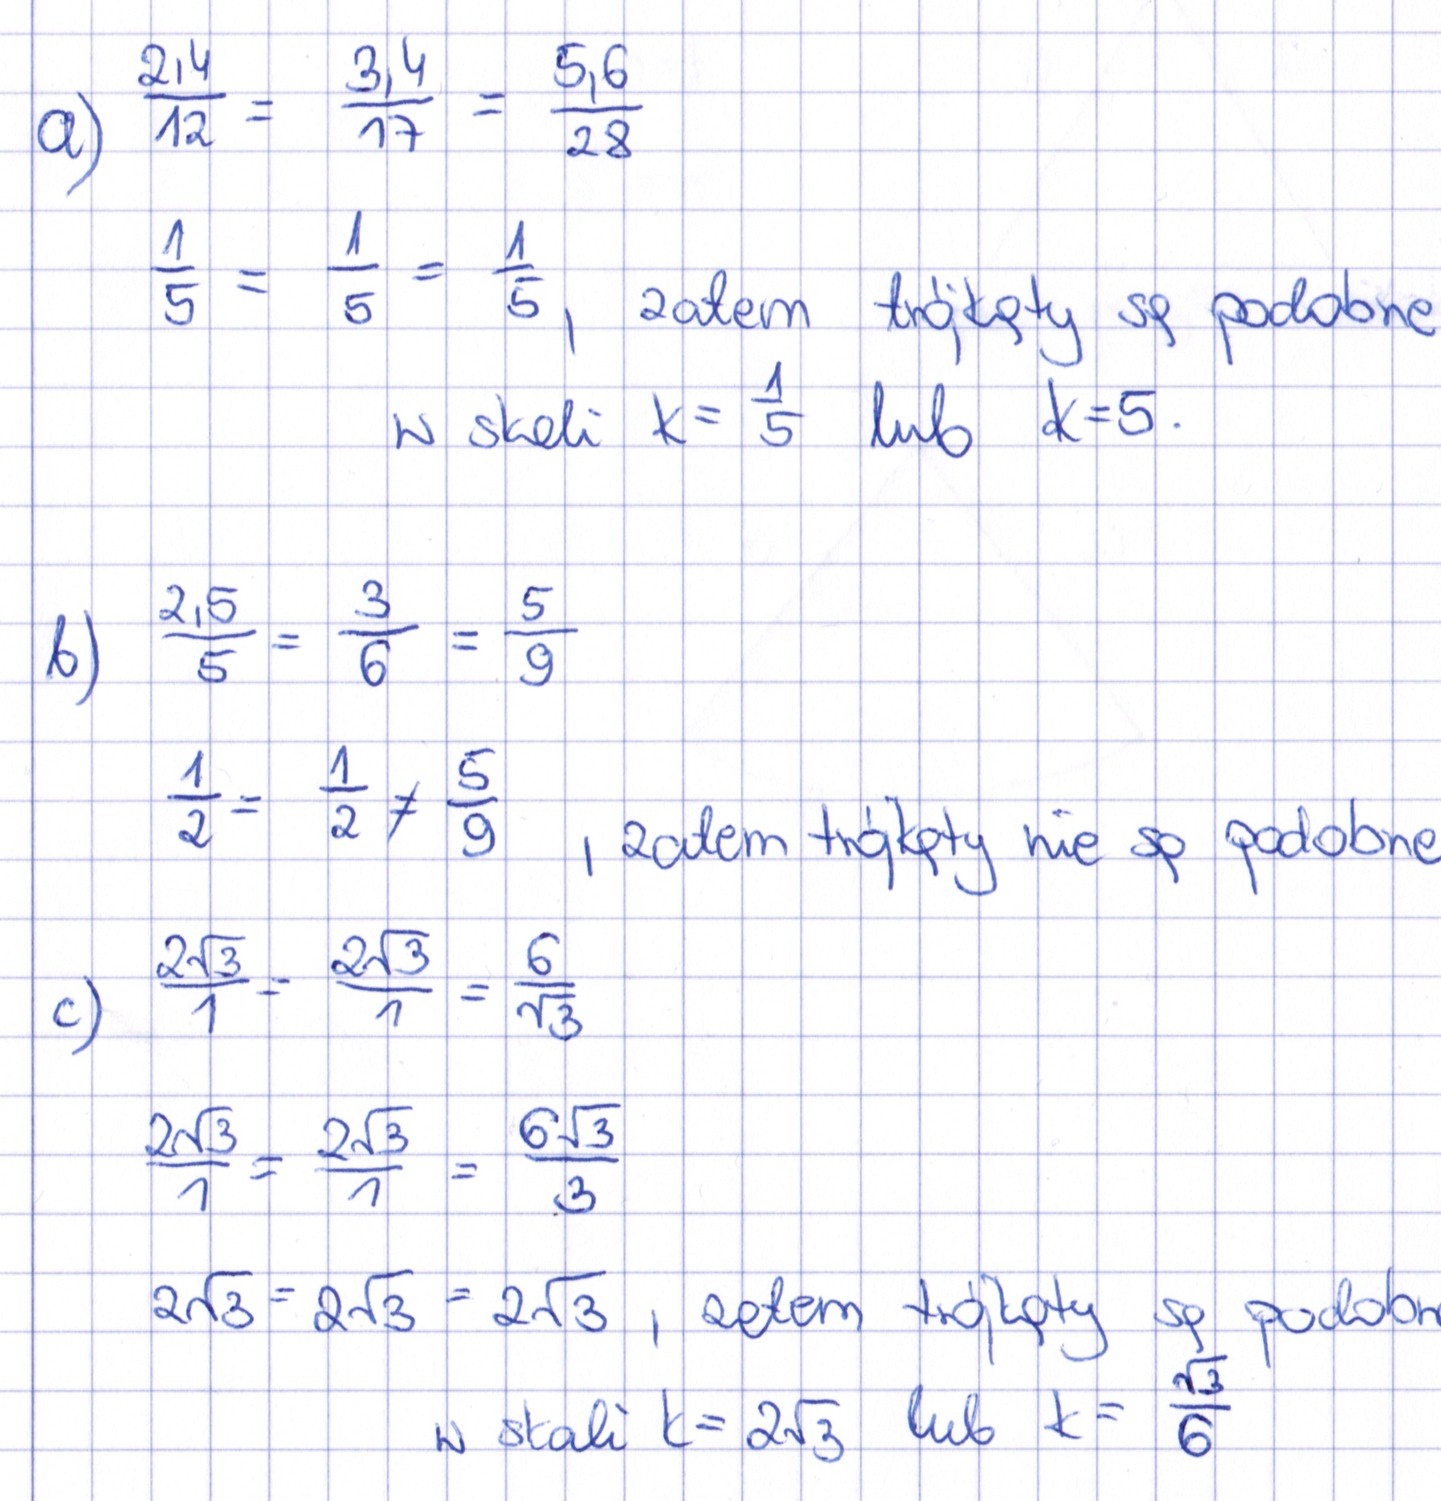 a) 2,4/12 = 3,4/17 = 5,6/28
1/5 = 1/5 = 1/5, zatem trójkąty są podobne
w skali k = 1/5 lub k = 5.
b) 2,5/5 = 3/6 = 5/9
1/2 = 1/2 ≠ 5/9, zatem trójkąty nie są podobne
c) 2√3/1 = 2√3/1 = 6/√3
2√3/1 = 2√3/1 = 6√3/3
2√3 = 2√3 = 2√3, zatem trójkąty są podobn
w skali k = 2√3 lub k = √3/6